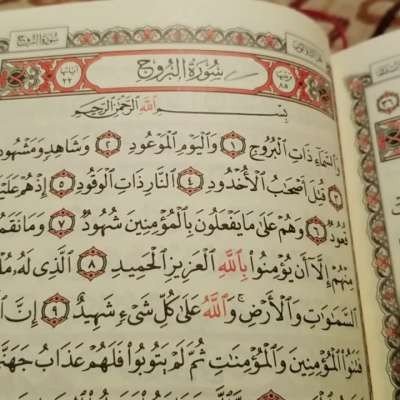 سُورَةُ البُرُوجِ
آياتها ٢٢
سُورَةُ البُرُوجِ
ترتيبها ٨٥
بِسْمِ ٱللَّهِ ٱلرَّحْمَٰنِ ٱلرَّحِيمِ
وَٱلسَّمَآءِ ذَاتِ ٱلْبُرُوجِ ١ وَٱلْيَوْمِ ٱلْمَوْعُودِ ٢ وَشَاهِدٍ وَمَشْهُودٍ
٣ قُتِلَ أَصْحَٰبُ ٱلْأُخْدُودِ ٤ ٱلنَّارِ ذَاتِ ٱلْوَقُودِ ٥ إِذْ هُمْ عَلَيْ
قُعُودٌ ٦ وَهُمْ عَلَىٰ مَا يَفْعَلُونَ بِٱلْمُؤْمِنِينَ شُهُودٌ ٧ وَمَا نَقَمُ
مِنْهُمْ إِلَّآ أَن يُؤْمِنُوا۟ بِٱللَّهِ ٱلْعَزِيزِ ٱلْحَمِيدِ ٨ ٱلَّذِى لَهُۥ مُلْ
ٱلسَّمَٰوَٰتِ وَٱلْأَرْضِ ۚ وَٱللَّهُ عَلَىٰ كُلِّ شَىْءٍ شَهِيدٌ ٩ إِنَّ ٱ
فَتَنُوا۟ ٱلْمُؤْمِنِينَ وَٱلْمُؤْمِنَٰتِ ثُمَّ لَمْ يَتُوبُوا۟ فَلَهُمْ عَذَابُ جَهَنَّ